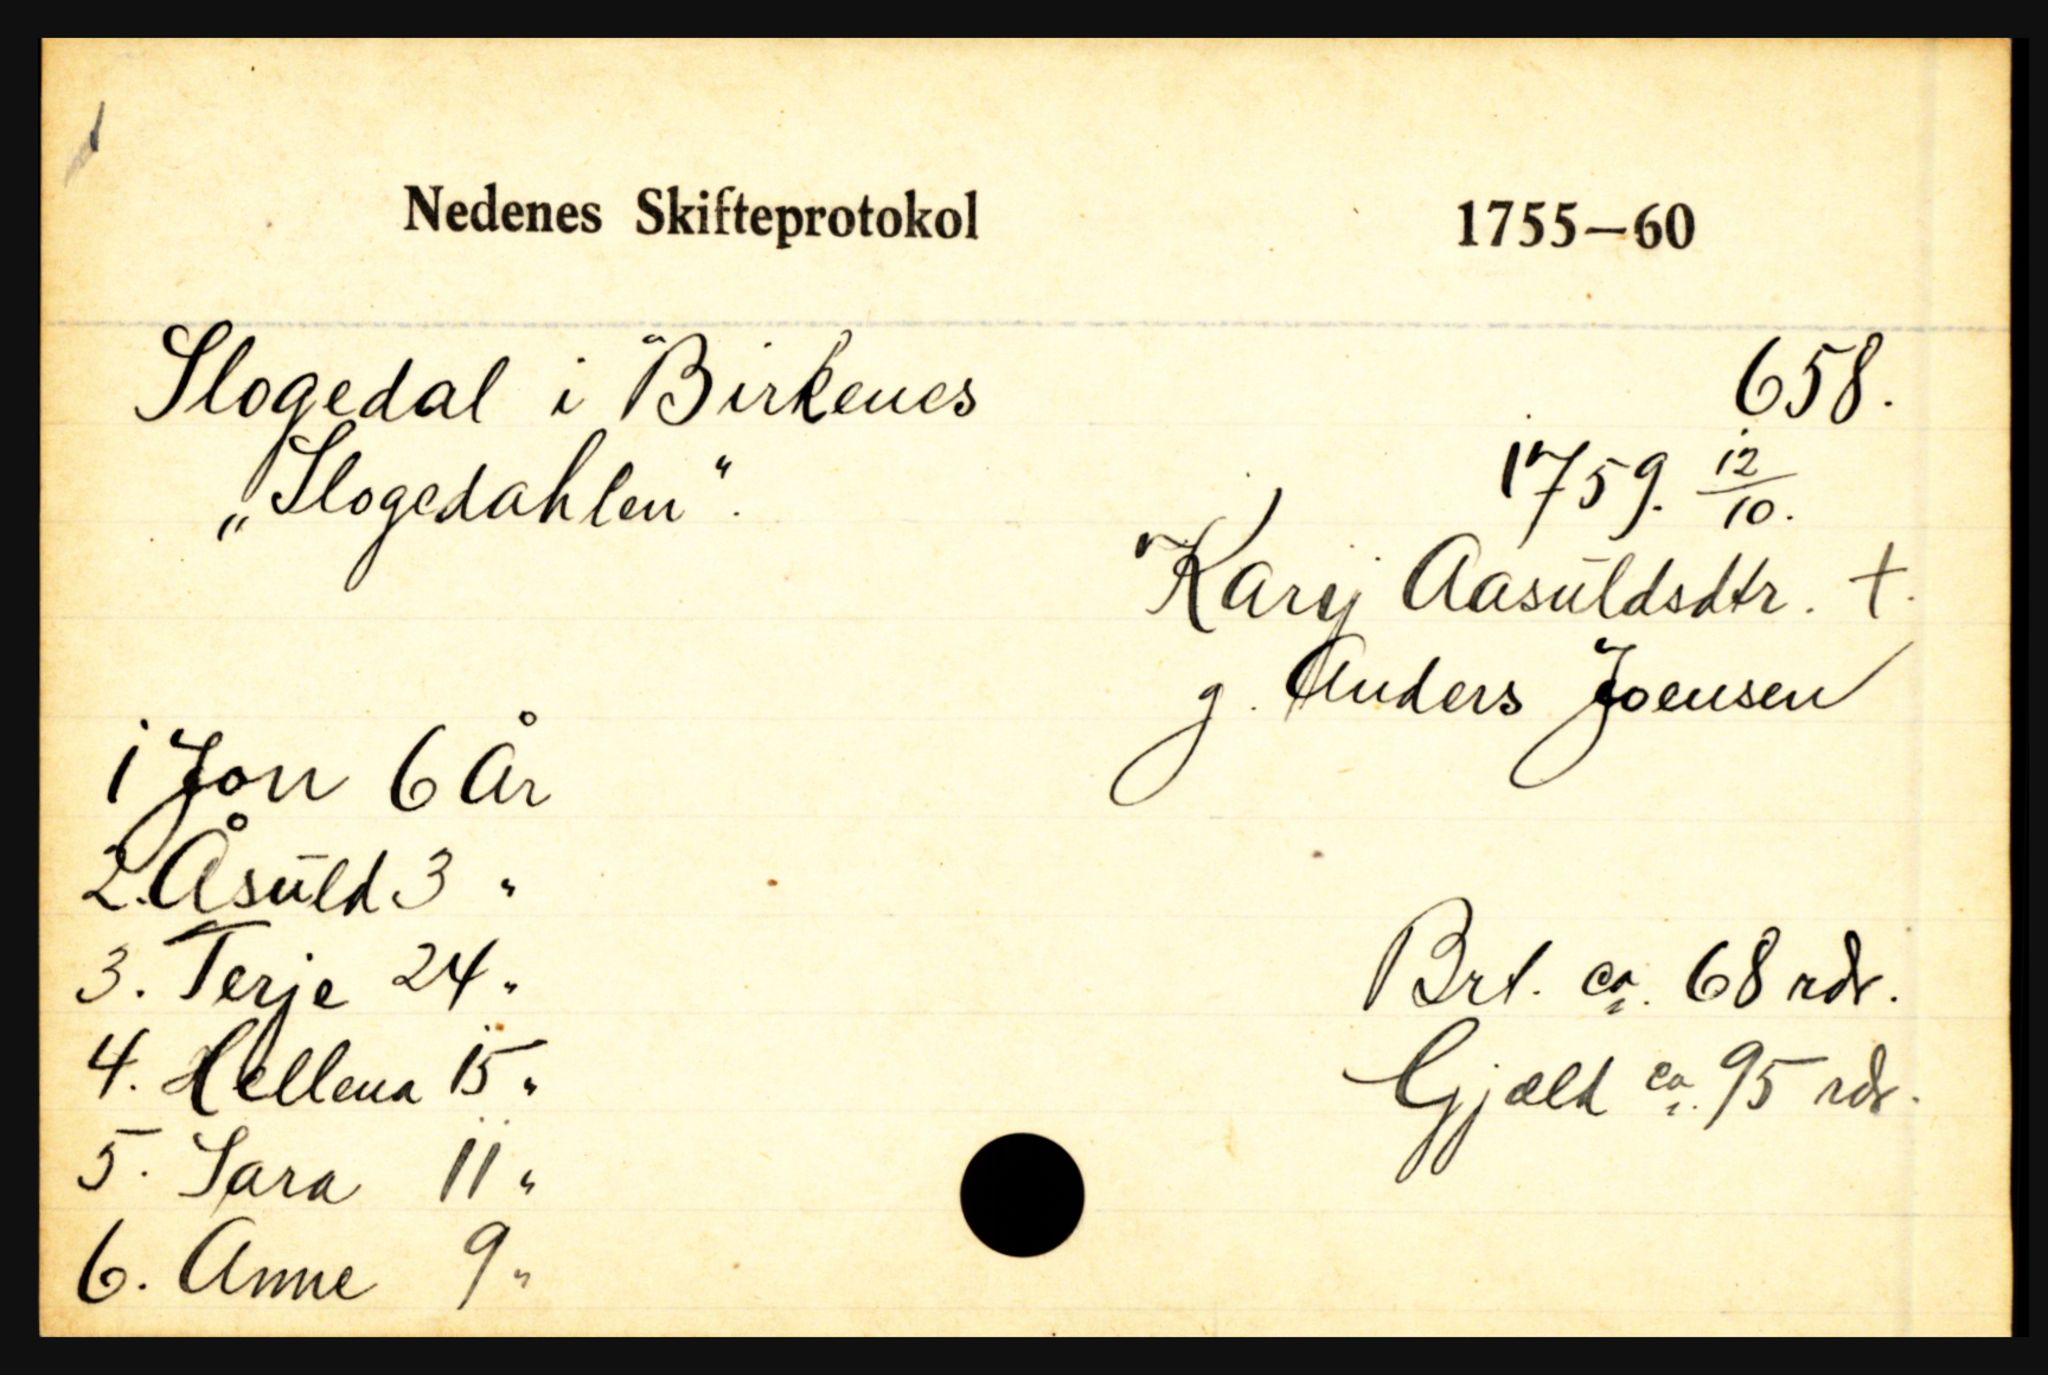 Nedenes Skifteprotokol 1755—60
Slogedal i Birkenes 658.
„Slogedahlen“. 1759. 12/10.
Karj Aasuldsdtr. †.
g. Anders Joensen
1 Jon 6 År
2. Åsuld 3 "
3. Terje 24 "
Brt. ca. 68 rdr.
4. Hellena 15 "
Gjæld ca. 95 rdr.
5. Sara 11 "
6. Anne 9 "